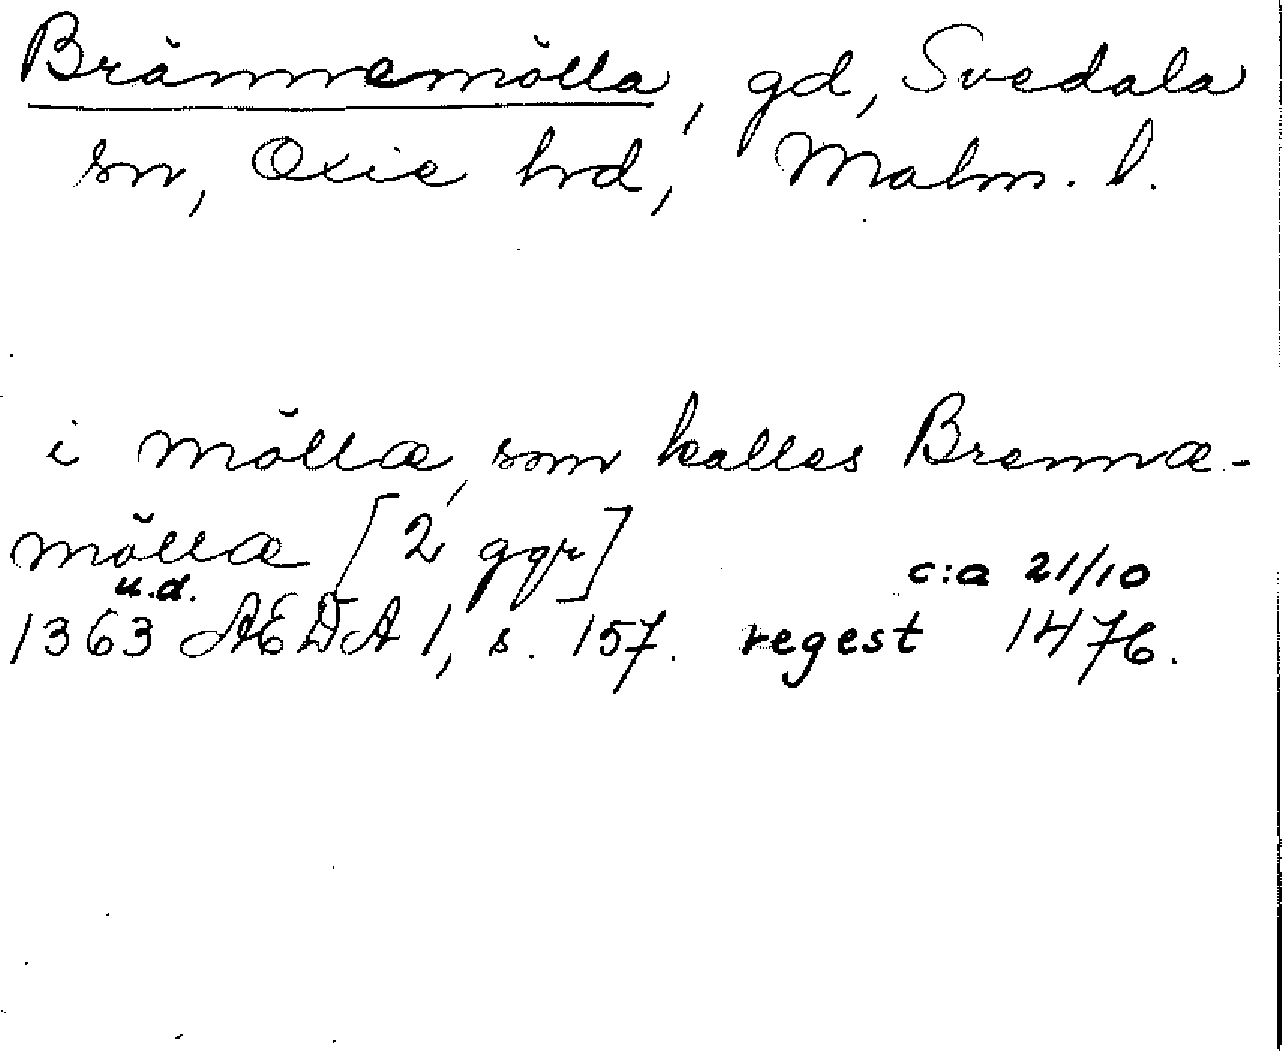 Brännemölla, gd, Svedala
sn, Oxie hd, Malm. l.
i möllæ, som kalles Brennæ-
möllæ [2 ggr]
u.d. c:a 21/10
1363 AEDA 1, s. 157. regest 1476.